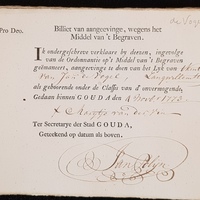 de Vog
Pro Deo.
Billiet van aangeevinge, wegens het
Middel van 't Begraven.
Ik ondergeschreve verklaare by deezen, ingevolge
van de Ordonnantie op 't Middel van 't Begraven
geëmaneert, aangeevinge te doen van het Lyk van
van Jan de Vogel
als gehoorende onder de Classis van d' onvermogende;
Gedaan binnen GOUDA den 4
Ter Secretarye der Stad GOUDA,
Geteekend op datum als boven.